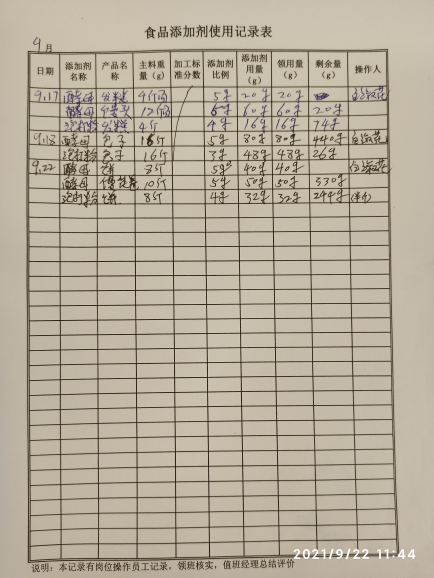 食品添加剂使用记录表
9月
日期 添加剂名称 产品名称 主料重量（g） 加工标准分数 添加剂比例 添加剂用量（g） 领用量（g） 剩余量（g） 操作人
9.17 酵母 发糕 4斤 5g 20g 20g
酵母 12斤 5g 60g 60g 20g
泡打粉 发糕 4斤 4g 16g 16g 74g
9.18 酵母 包子 16斤 5g 80g 80g 440g
泡打粉 包子 16斤 3g 48g 48g 26g
9.22 酵母 饼 8斤 5g 40g 40g
酵母 10斤 5g 50g 50g 330g
泡打粉 饼 8斤 4g 32g 32g 294g
说明：本记录有岗位操作员工记录，领班核实，值班经理总结评价
2021/9/22 11:44